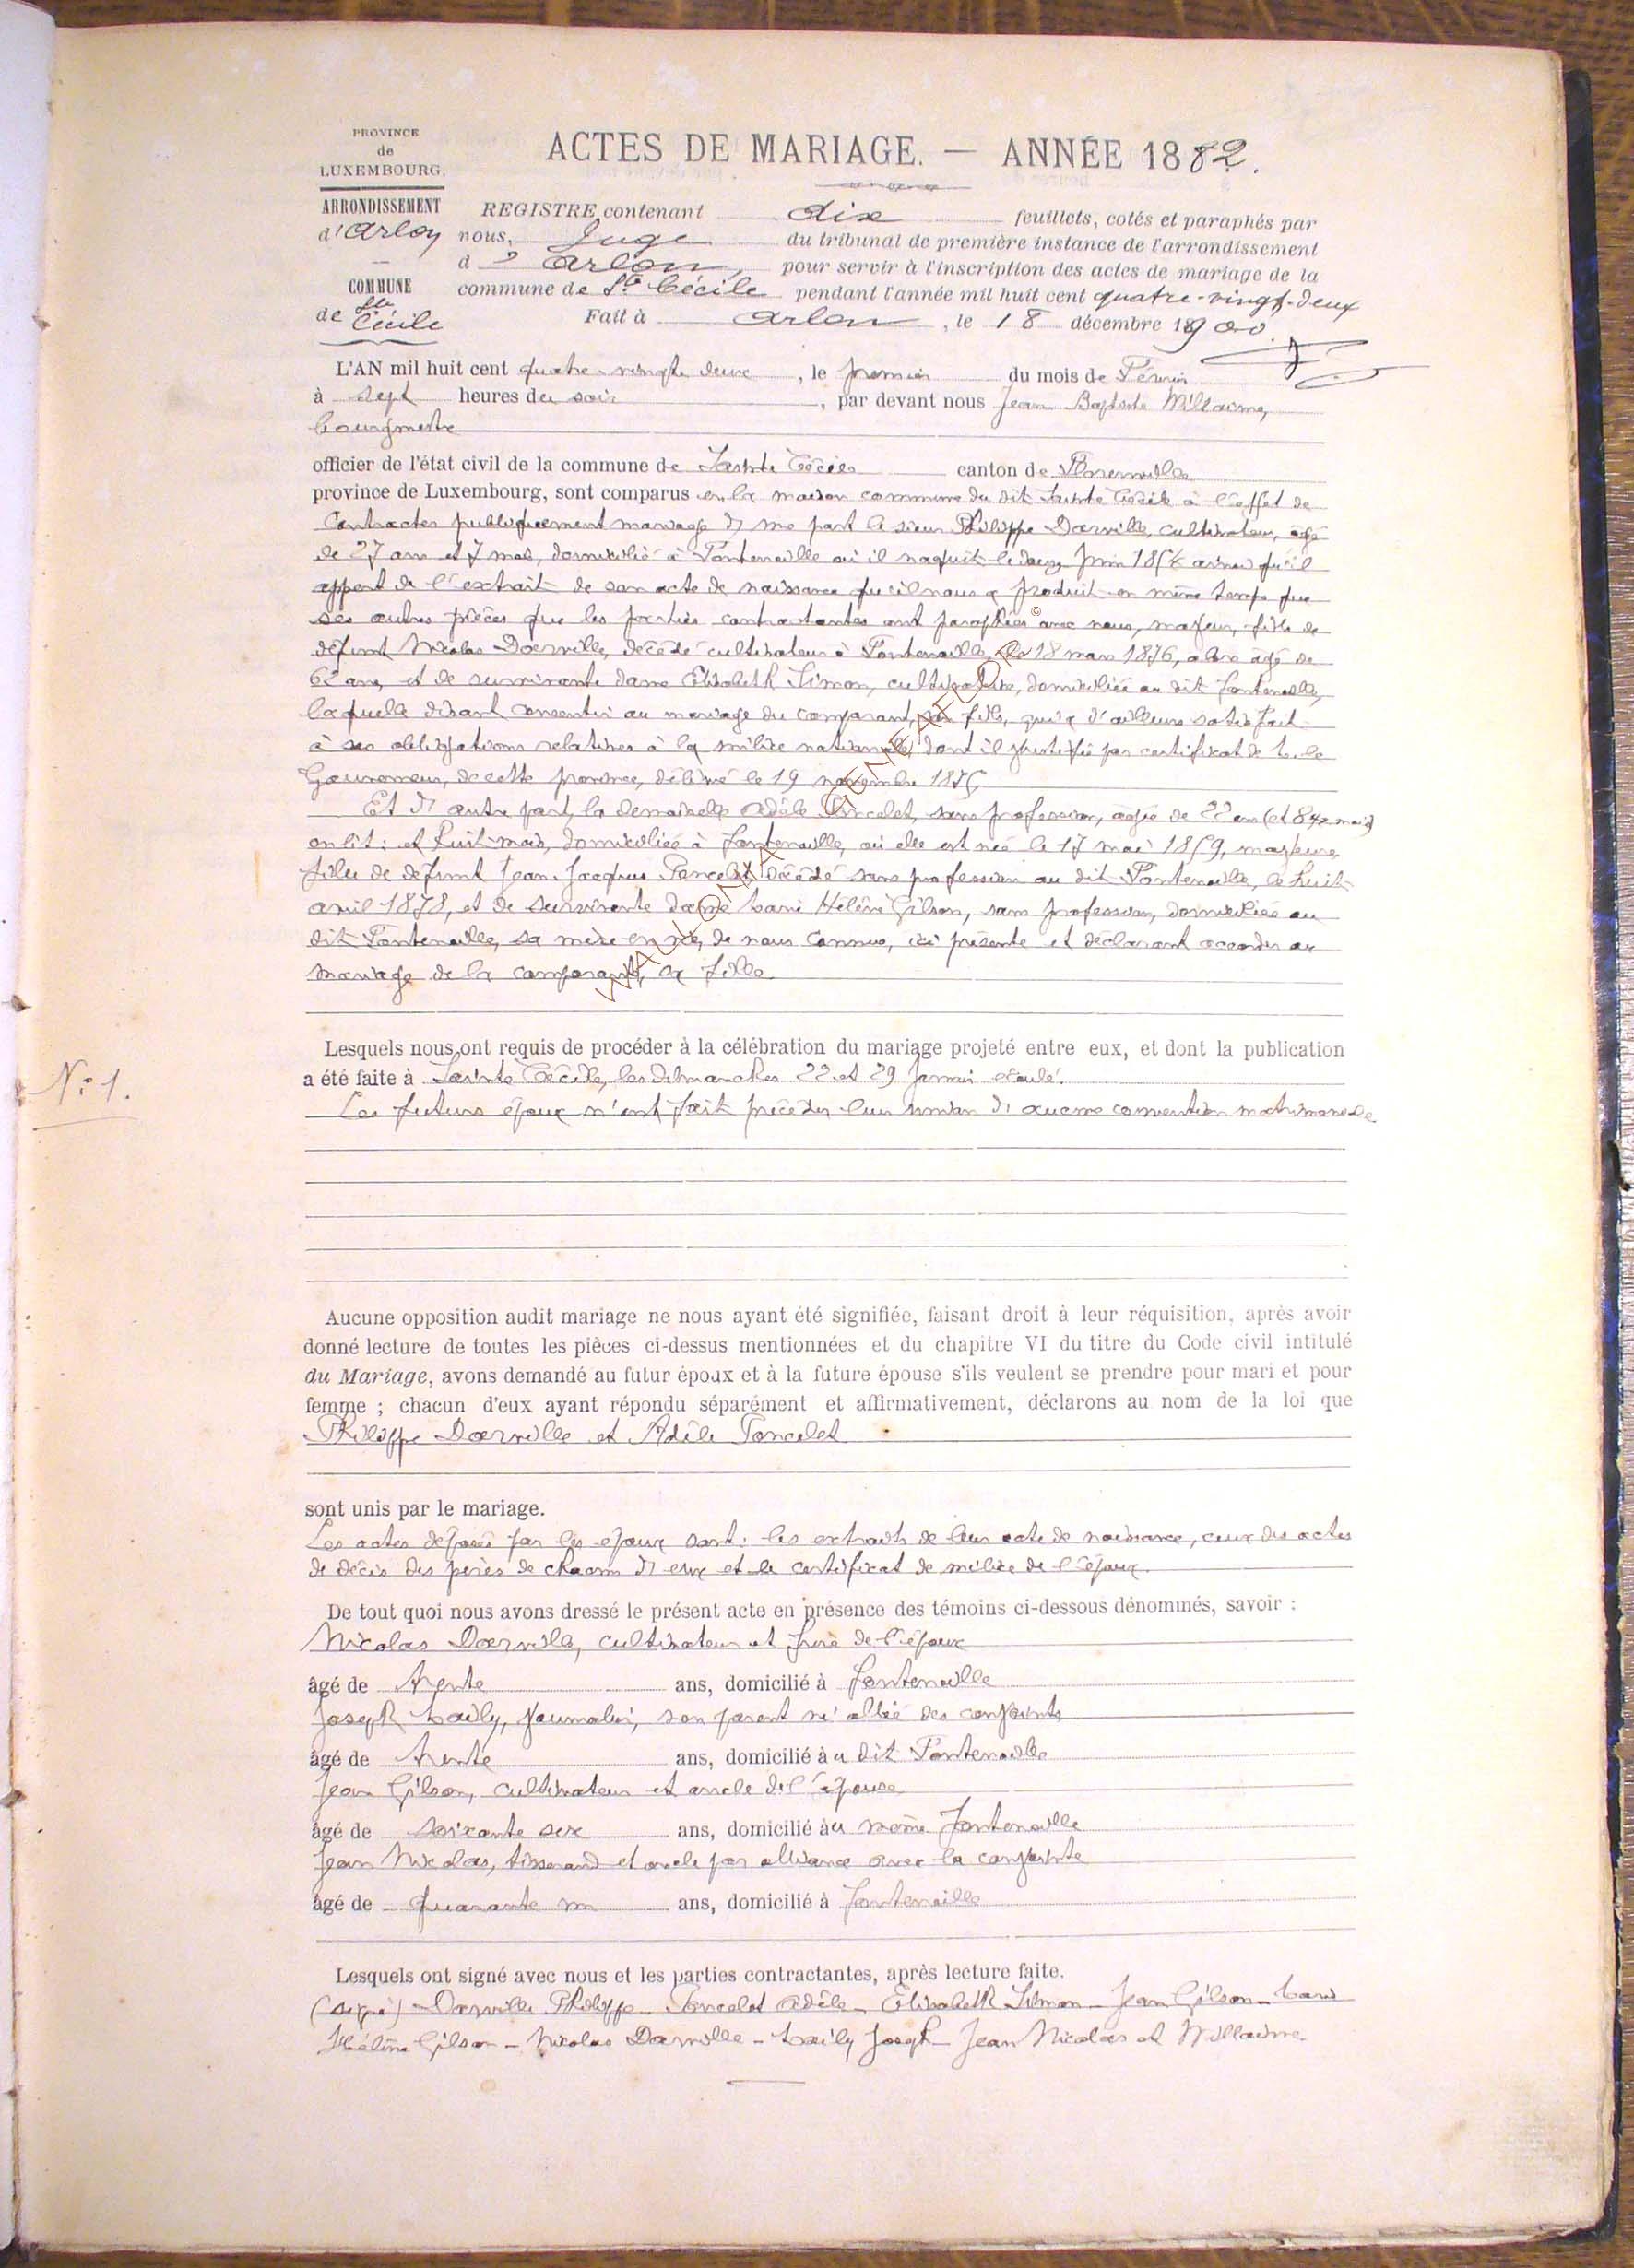 PROVINCE
de
LUXEMBOURG.
ARRONDISSEMENT
d'Arlon
COMMUNE
de Ste Cécile
ACTES DE MARIAGE. — ANNÉE 1882.
REGISTRE contenant dix feuillets, cotés et paraphés par
nous, Juge du tribunal de première instance de l'arrondissement
d'Arlon, pour servir à l'inscription des actes de mariage de la
commune de Ste Cécile pendant l'année mil huit cent quatre-vingt-deux
Fait à Arlon, le 18 décembre 1900.
L'AN mil huit cent quatre-vingts deux, le premier du mois de Février
à sept heures du soir, par devant nous Jean Baptiste Willaime,
bourgmestre
officier de l'état civil de la commune de Sainte Cécile canton de Florenville
province de Luxembourg, sont comparus en la maison commune du dit Sainte Cécile à l'effet de
contracter publiquement mariage d'une part le sieur Philippe Darville, cultivateur, âgé
de 27 ans et 7 mois, domicilié à Fontenoille où il naquit le douze juin 1854 ainsi qu'il
appert de l'extrait de son acte de naissance qu'il nous a produit en même temps que
ses autres pièces que les parties contractantes ont paraphées avec nous, majeur, fils de
défunt Nicolas Darville, décédé cultivateur à Fontenoille, le 18 mars 1876, alors âgé de
62 ans, et de survivante dame Elisabeth Simon, cultivatrice, domiciliée au dit Fontenoille,
laquelle disant consentir au mariage du comparant, son fils, qui a d'ailleurs satisfait
à ses obligations relatives à la milice nationale, dont il justifie par certificat de M. le
Gouverneur, de cette province, délivré le 19 novembre 1875.
Et d'autre part, la demoiselle Adèle Poncelet, sans profession, âgée de 22 ans (et 8 mois)
on lit : et huit mois, domiciliée à Fontenoille, où elle est née le 17 mai 1859, majeure,
fille de défunt Jean Jacques Poncelet décédé sans profession au dit Fontenoille, le huit
avril 1878, et de survivante dame Marie Hélène Gilson, sans profession, domiciliée au
dit Fontenoille, sa mère en vie, de nous connue, ici présente et déclarant accorder au
mariage de la comparante, sa fille.
LUXEMBOURG
N° 1.
Lesquels nous ont requis de procéder à la célébration du mariage projeté entre eux, et dont la publication
a été faite à Sainte Cécile, les dimanches 22 et 29 janvier écoulé.
Les futurs époux n'ont fait précéder leur union d'aucune convention matrimoniale
Aucune opposition audit mariage ne nous ayant été signifiée, faisant droit à leur réquisition, après avoir
donné lecture de toutes les pièces ci-dessus mentionnées et du chapitre VI du titre du Code civil intitulé
du Mariage, avons demandé au futur époux et à la future épouse s'ils veulent se prendre pour mari et pour
femme ; chacun d'eux ayant répondu séparément et affirmativement, déclarons au nom de la loi que
Philippe Darville et Adèle Poncelet
sont unis par le mariage.
Les actes déposés par les époux sont : les extraits de leur acte de naissance, ceux des actes
de décès des pères de chacun d'eux et le certificat de milice de l'époux.
De tout quoi nous avons dressé le présent acte en présence des témoins ci-dessous dénommés, savoir :
Nicolas Darville, cultivateur et frère de l'époux
âgé de trente ans, domicilié à Fontenoille
Joseph Mailly, journalier, non parent ni allié des conjoints
âgé de trente ans, domicilié au dit Fontenoille
Jean Gilson, cultivateur et oncle de l'épouse
âgé de soixante six ans, domicilié au même Fontenoille
Jean Nicolas, tisserand et oncle par alliance avec la conjointe
âgé de quarante un ans, domicilié à Fontenoille
Lesquels ont signé avec nous et les parties contractantes, après lecture faite.
(signé) Darville Philippe – Poncelet Adèle – Elisabeth Simon – Jean Gilson – Marie
Hélène Gilson – Nicolas Darville – Mailly Joseph – Jean Nicolas et Willaime.